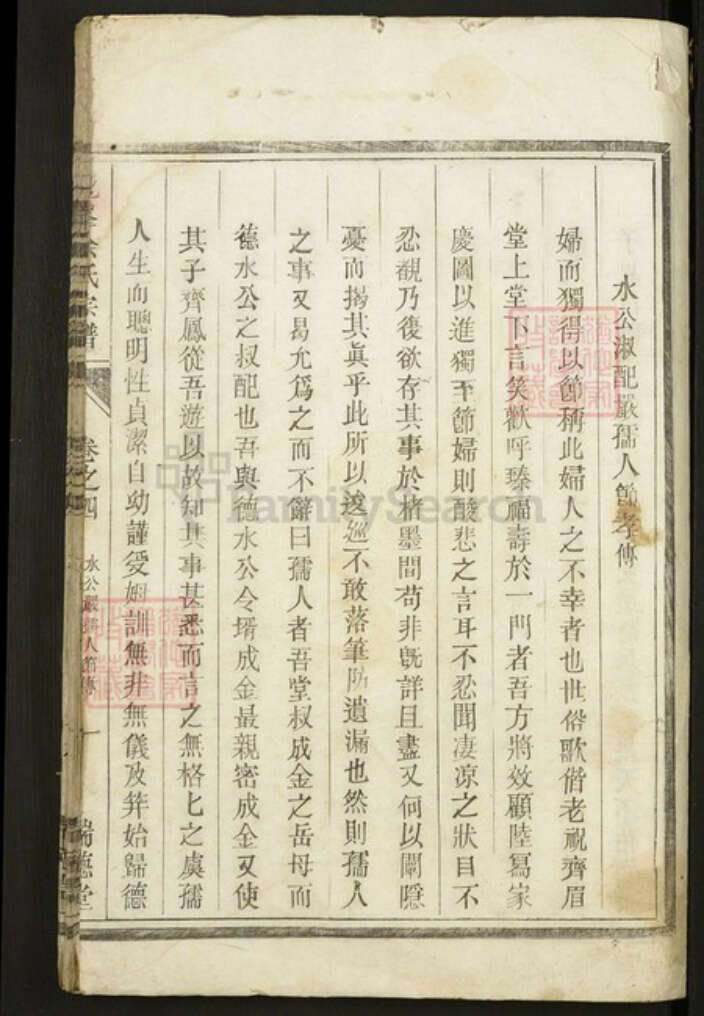 水公淑配嚴孺人節孝傳
婦而獨得以節稱此婦人之不幸者也世俗歌偕老祝齊眉
堂上堂下言笑歡呼臻福壽於一門者吾方將效顧陸寫家
慶圖以進獨至節婦則酸悲之言耳不忍聞凄凉之狀目不
忍覩乃復欲存其事於楮墨間苟非旣詳且盡又何以闡隱
憂而揭其眞乎此所以逡巡不敢落筆防遺漏也然則孺人
之事又曷允爲之而不辭曰孺人者吾堂叔成金之岳母而
德水公之叔配也吾與德水公令壻成金最親密成金又使
其子齊鳳從吾遊以故知其事甚悉而言之無格匕之虞孺
人生而聰明性貞潔自幼謹受姆訓無非無儀及筓始歸德
余氏宗譜
卷之四
水公嚴孺人節傳
一
瑞德堂
FamilySearch